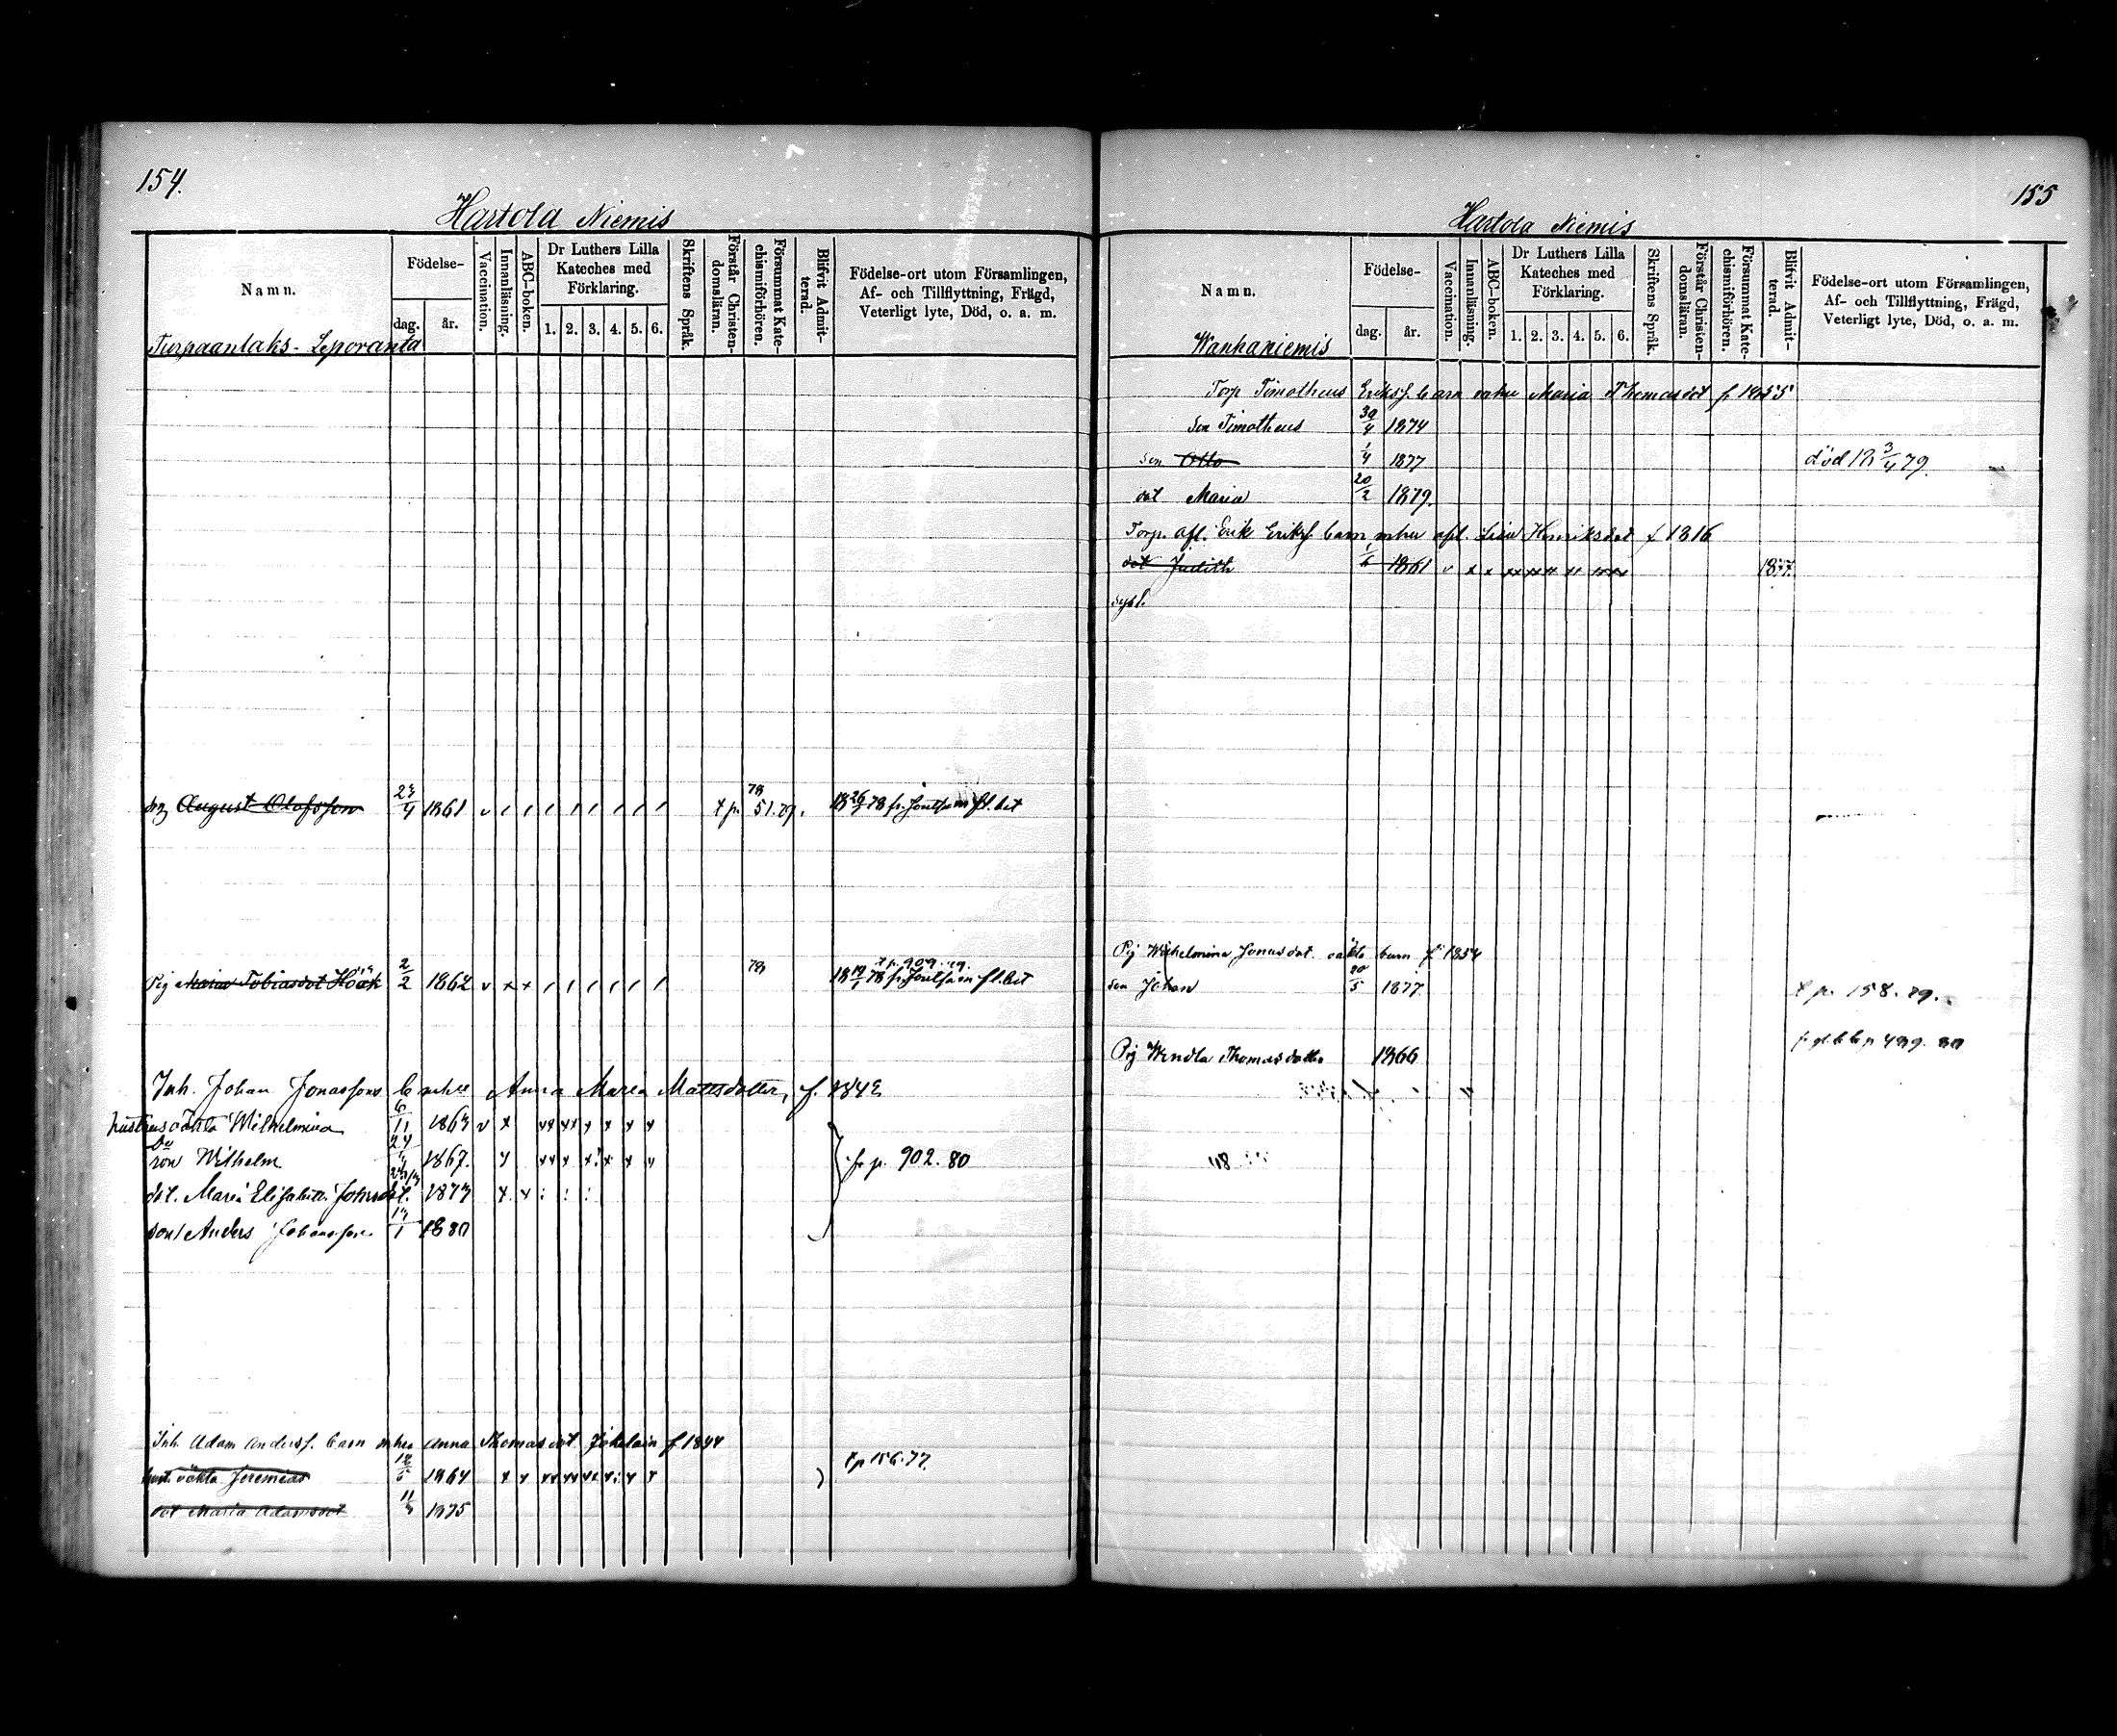 154.
Hartola Niemis
Namn.
Födelse-
dag.
år.
Vaccination.
Innanläsning.
ABC-boken.
Dr Luthers Lilla
Kateches med
Förklaring.
1. 2. 3. 4. 5. 6.
Skriftens Språk.
Förstår Christen-
domsläran.
Försummat Kate-
chismiförhören.
Blifvit Admit-
terad.
Födelse-ort utom Församlingen,
Af- och Tillflyttning, Frägd,
Veterligt lyte, Död, o. a. m.
Turpaanlaks-Leporanta
August Olofsson 23/4 1861 v / / / / / / / / t p. 78 51.79. 18 26/2 78 fr. Joutsa m fl. bet
t p. 909.79.
Pig Maria Tobiasdot Höök 2/2 1862 v x x / / / / / / 78 18 19/1 78 fr. Joutsa m fl. bet
Inh. Johan Jonassons b m hu Anna Maria Mattsdotter, f. 1842
hustrus oäkta Wilhelmina 6/11 1863 v x xx xx x x x x
son Wilhelm 1867. x xx x x x x x
fr p. 902.80
dot. Maria Elisabeth Johansdot. 1873 x x : : :
son Anders Johansson 13/1 1880
Inh. Adam Andersf. barn m hu Anna Thomasdot Jokelain f 1844
oäkta Jeremias 12/5 1864 x x xx xx xx x x x
t p 156.77.
dot Maria Adamsdot 11/3 1875
155
Hartola Niemis
Namn.
Födelse-
dag.
år.
Vaccination.
Innanläsning.
ABC-boken.
Dr Luthers Lilla
Kateches med
Förklaring.
1. 2. 3. 4. 5. 6.
Skriftens Språk.
Förstår Christen-
domsläran.
Försummat Kate-
chismiförhören.
Blifvit Admit-
terad.
Födelse-ort utom Församlingen,
Af- och Tillflyttning, Frägd,
Veterligt lyte, Död, o. a. m.
Wanhaniemis
Torp Timotheus Eriksf. barn m hu Maria Thomasdot f 1855
son Timotheus 30/4 1874
son Otto 1/4 1877 död 18 3/4 79
dot Maria 20/2 1879.
Torp. afl. Erik Eriksf. barn m hu afl. Lisa Henriksdot f 1816
dot Judith 1/6 1861 v x x xx xx xx xx xx xx 1877.
Pig Wilhelmina Jonasdot oäkta barn f 1854
son Johan 20/5 1877 t p. 158.79.
Pig Wendla Thomasdotter 1866 489. 80